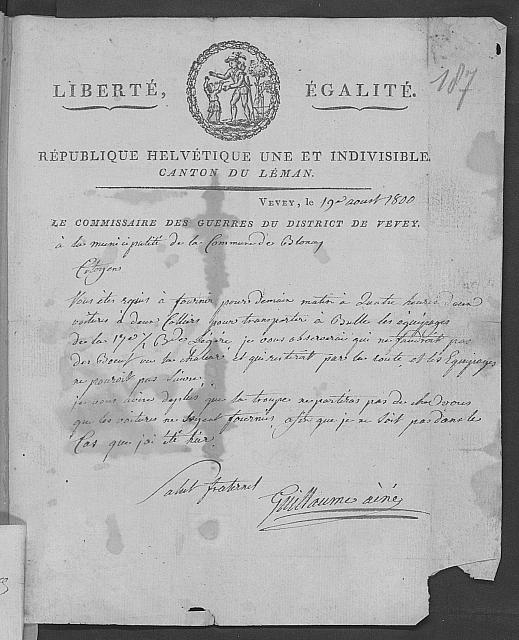 187
LIBERTÉ, ÉGALITÉ.
RÉPUBLIQUE HELVÉTIQUE UNE ET INDIVISIBLE.
CANTON DU LÉMAN.
VEVEY, le 19e aoust 1800
LE COMMISSAIRE DES GUERRES DU DISTRICT DE VEVEY.
à la municipalité de la Commune de Blonay
Citoyens
Vous êtes requis à fournir pour demain matin à Quatre heures deux
voitures à deux Colliers pour transporter à Bulle les équipages
de la 17e 1/2 B. Légère, je vous observerai qui ne faudroit pas
des Boeuf vu la chaleur et qui resterat par la route, et les Equipages
ne pouroit pas suivre,
je vous avise de plus que la troupe ne partiras pas de chez vous
que les voitures ne soyent fournies afin que je ne soit pas dans le
Cas que j'ai été hier.
Salut fraternel
Guillaume ainé